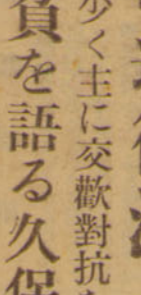 少く主に交歡對抗
負を語る久保